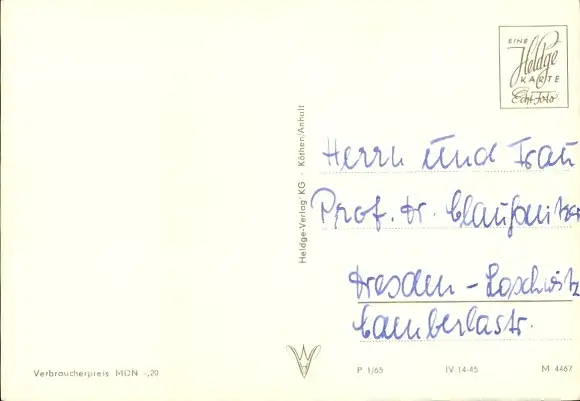 EINE
Heldge
KARTE
Echt Foto
Heldge-Verlag KG - Köthen/Anhalt
Herrn und Frau
Prof. Dr. Claußnitzer
Dresden - Loschwitz
Verbraucherpreis MDN -,20
P 1/65
IV 14-45
M 4467